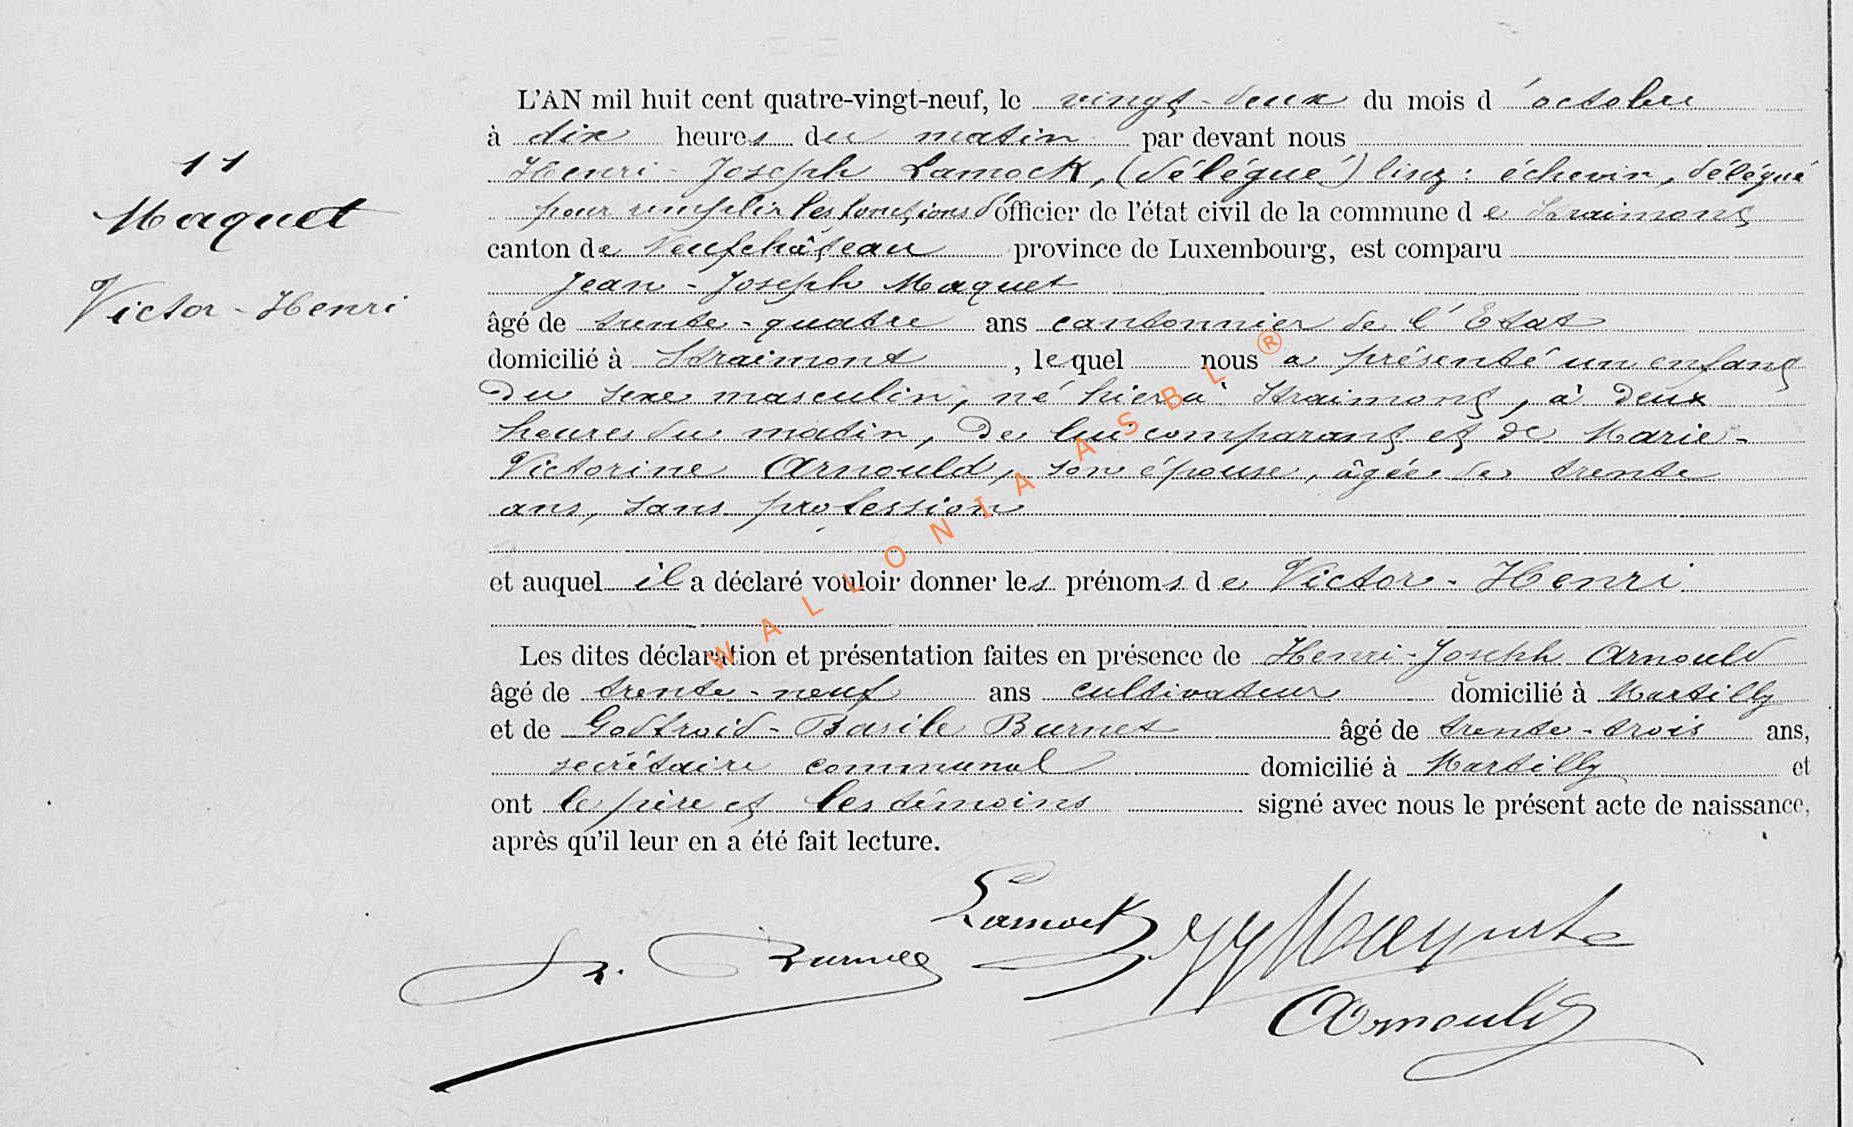 11
Maquet
Victor-Henri
L'AN mil huit cent quatre-vingt-neuf, le vingt-deux du mois d'octobre
à dix heures du matin par devant nous
Henri-Joseph Lamock, (délégué) : échevin, délégué
pour remplir les fonctions d'officier de l'état civil de la commune de Straimont
canton de Neufchâteau province de Luxembourg, est comparu
Jean-Joseph Maquet
âgé de trente-quatre ans cantonnier de l'État
domicilié à Straimont, lequel nous a présenté un enfant
du sexe masculin, né hier à Straimont, à deux
heures du matin, de lui comparant et de Marie-
Victorine Arnould, son épouse, âgée de trente
ans, sans profession
et auquel il a déclaré vouloir donner les prénoms de Victor-Henri
Les dites déclaration et présentation faites en présence de Henri-Joseph Arnould
âgé de trente-neuf ans cultivateur domicilié à Martilly
et de Godfroid-Basile Burnet âgé de trente-trois ans,
secrétaire communal domicilié à Martilly et
ont le père et les témoins signé avec nous le présent acte de naissance,
après qu'il leur en a été fait lecture.
Lamock
Burnet
JJ Maquet
Arnould
WALLONIA ASBL ®